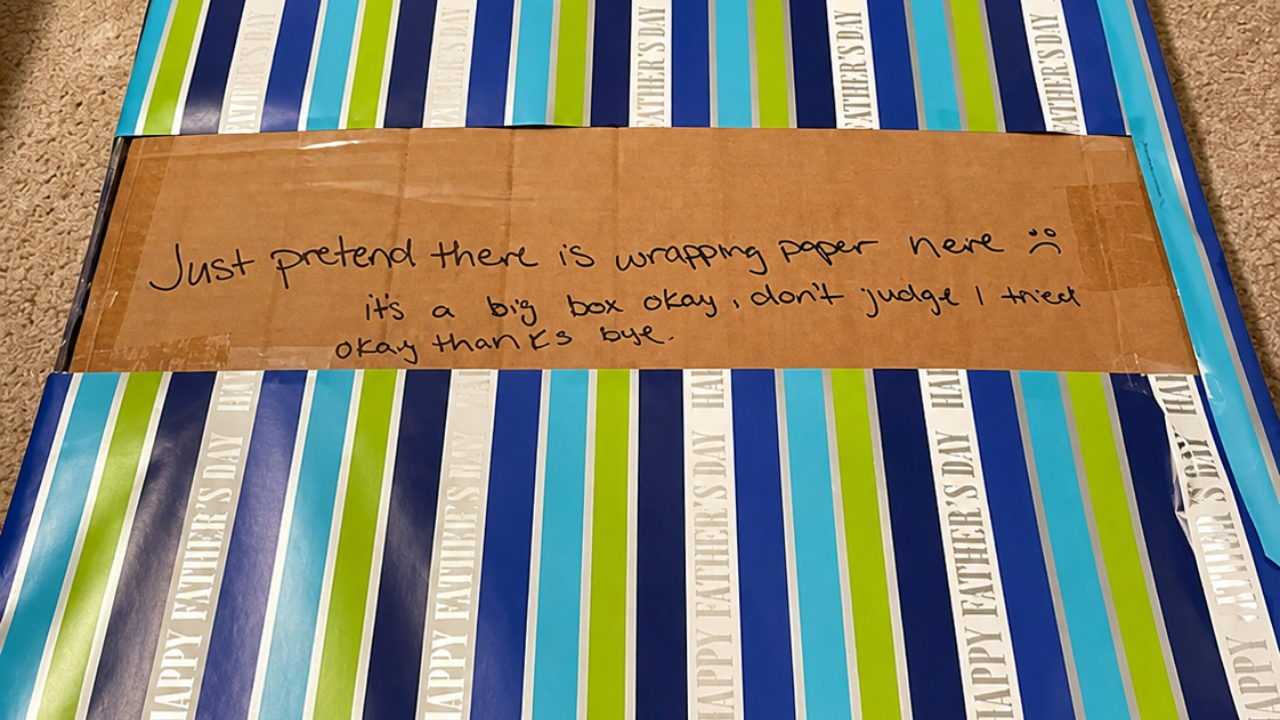 FATHER'S DAY FATHER'S DAY FATHER'S DAY FATHER'S DAY FATHER'S DAY
Just pretend there is wrapping paper here :(
it's a big box okay, don't judge I tried
okay thanks bye.
HAPPY FATHER'S DAY HAPPY FATHER'S DAY HAPPY FATHER'S DAY HAPPY FATHER'S DAY HAPPY FATHER'S DAY
HAP HAP HAP HAP HAP